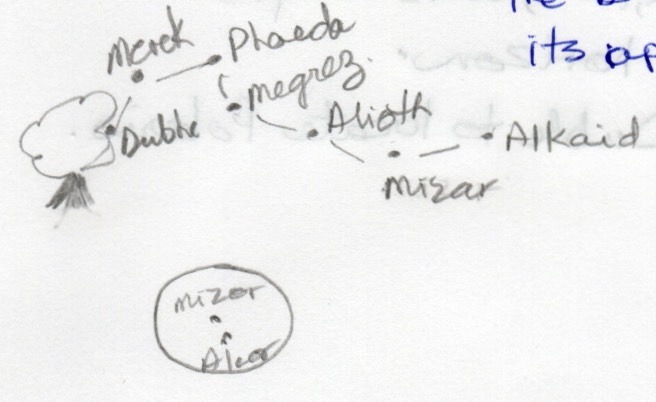 its
Merek
Phaeda
megrez.
Dubhe
Alioth
Alkaid
mizar
mizar
Alcor